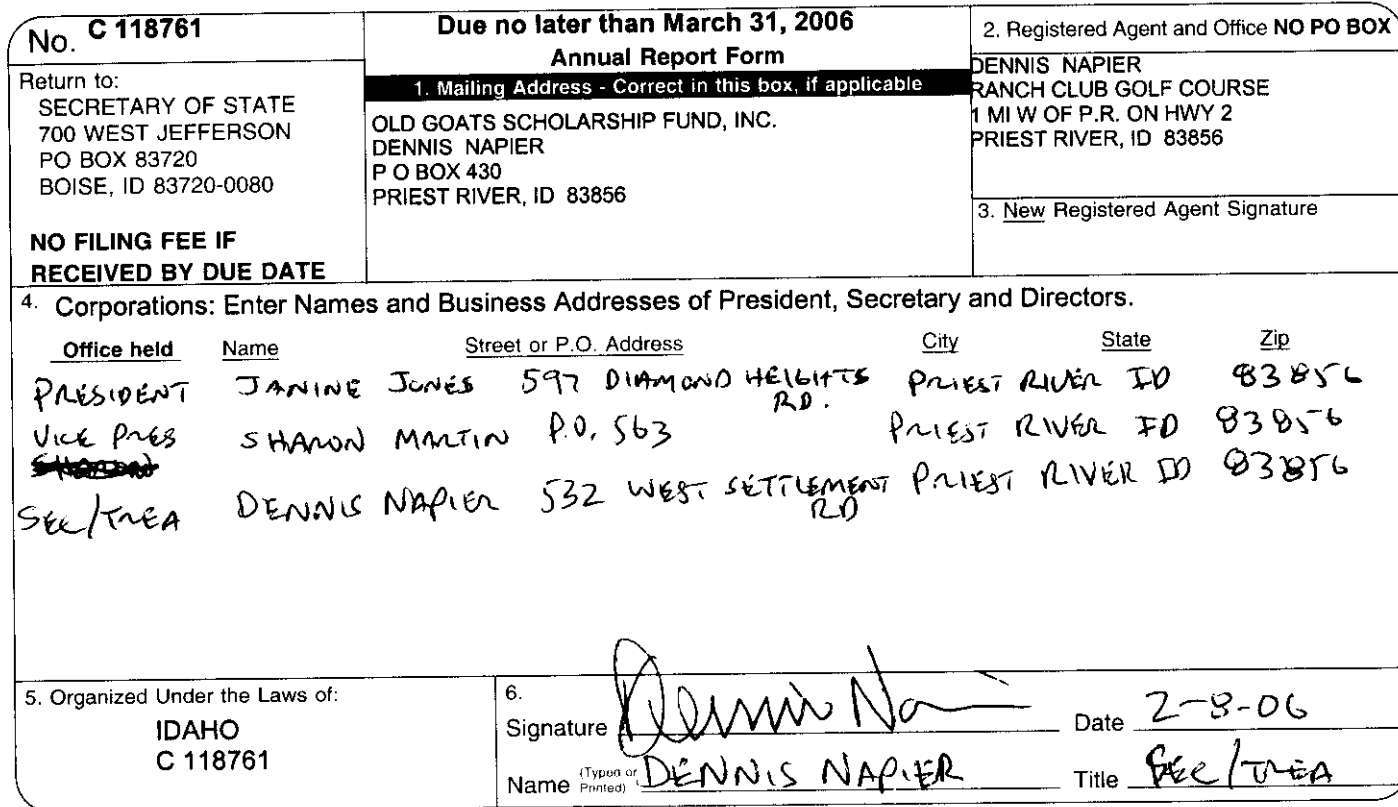 No. C 118761
Return to:
SECRETARY OF STATE
700 WEST JEFFERSON
PO BOX 83720
BOISE, ID 83720-0080
NO FILING FEE IF
RECEIVED BY DUE DATE
Due no later than March 31, 2006
Annual Report Form
1. Mailing Address - Correct in this box, if applicable
OLD GOATS SCHOLARSHIP FUND, INC.
DENNIS NAPIER
P O BOX 430
PRIEST RIVER, ID 83856
2. Registered Agent and Office NO PO BOX
DENNIS NAPIER
RANCH CLUB GOLF COURSE
1 MI W OF P.R. ON HWY 2
PRIEST RIVER, ID 83856
3. New Registered Agent Signature
4. Corporations: Enter Names and Business Addresses of President, Secretary and Directors.
Office held Name Street or P.O. Address City State Zip
PRESIDENT JANINE JONES 597 DIAMOND HEIGHTS RD. PRIEST RIVER ID 83856
VICE PRES SHARON MARTIN P.O. 563 PRIEST RIVER ID 83856
SEC/TREA DENNIS NAPIER 532 WEST SETTLEMENT RD PRIEST RIVER ID 83856
5. Organized Under the Laws of:
IDAHO
C 118761
6.
Signature Dennis Na Date 2-8-06
Name (Typed or Printed) DENNIS NAPIER Title SEC/TREA